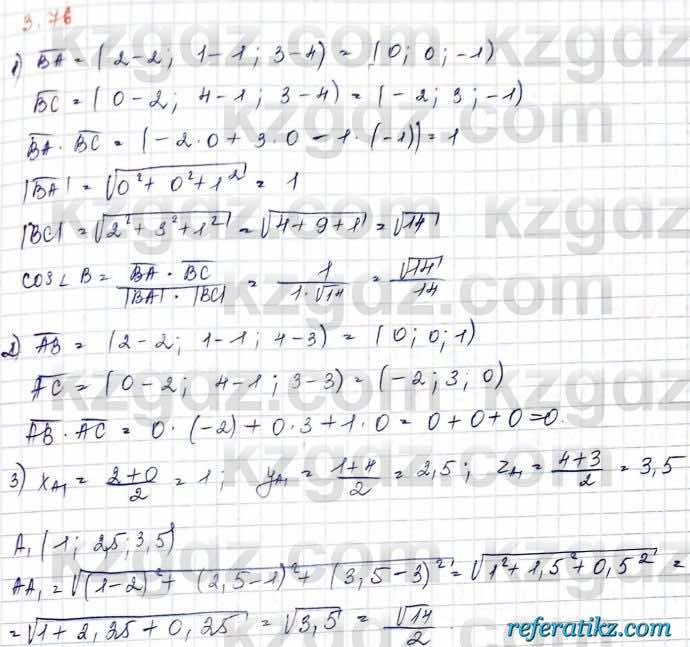 3.76
1) BA = (2-2; 1-1; 3-4) = (0; 0; -1)
BC = (0-2; 4-1; 3-4) = (-2; 3; -1)
BA · BC = (-2·0 + 3·0 - 1·(-1)) = 1
|BA| = √0²+0²+1² = 1
|BC| = √2²+3²+1² = √4+9+1 = √14
cos∠B = BA · BC / |BA| · |BC| = 1 / 1·√14 = √14 / 14
2) AB = (2-2; 1-1; 4-3) = (0; 0; 1)
AC = (0-2; 4-1; 3-3) = (-2; 3; 0)
AB · AC = 0·(-2) + 0·3 + 1·0 = 0+0+0=0.
3) x_A₁ = 2+0 / 2 = 1; y_A₁ = 1+4 / 2 = 2,5; z_A₁ = 4+3 / 2 = 3,5
A₁ (1; 2,5; 3,5)
AA₁ = √(1-2)² + (2,5-1)² + (3,5-3)² = √1²+1,5²+0,5² =
= √1+2,25+0,25 = √3,5 = √14 / 2.
kzgdz.com
referatikz.com